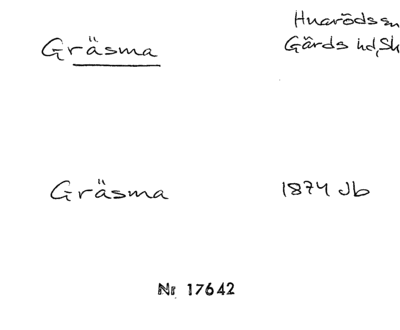 Gräsma
Huarödssn
Gärds hd, Sk
Gräsma 1874 Jb
Nr 17642